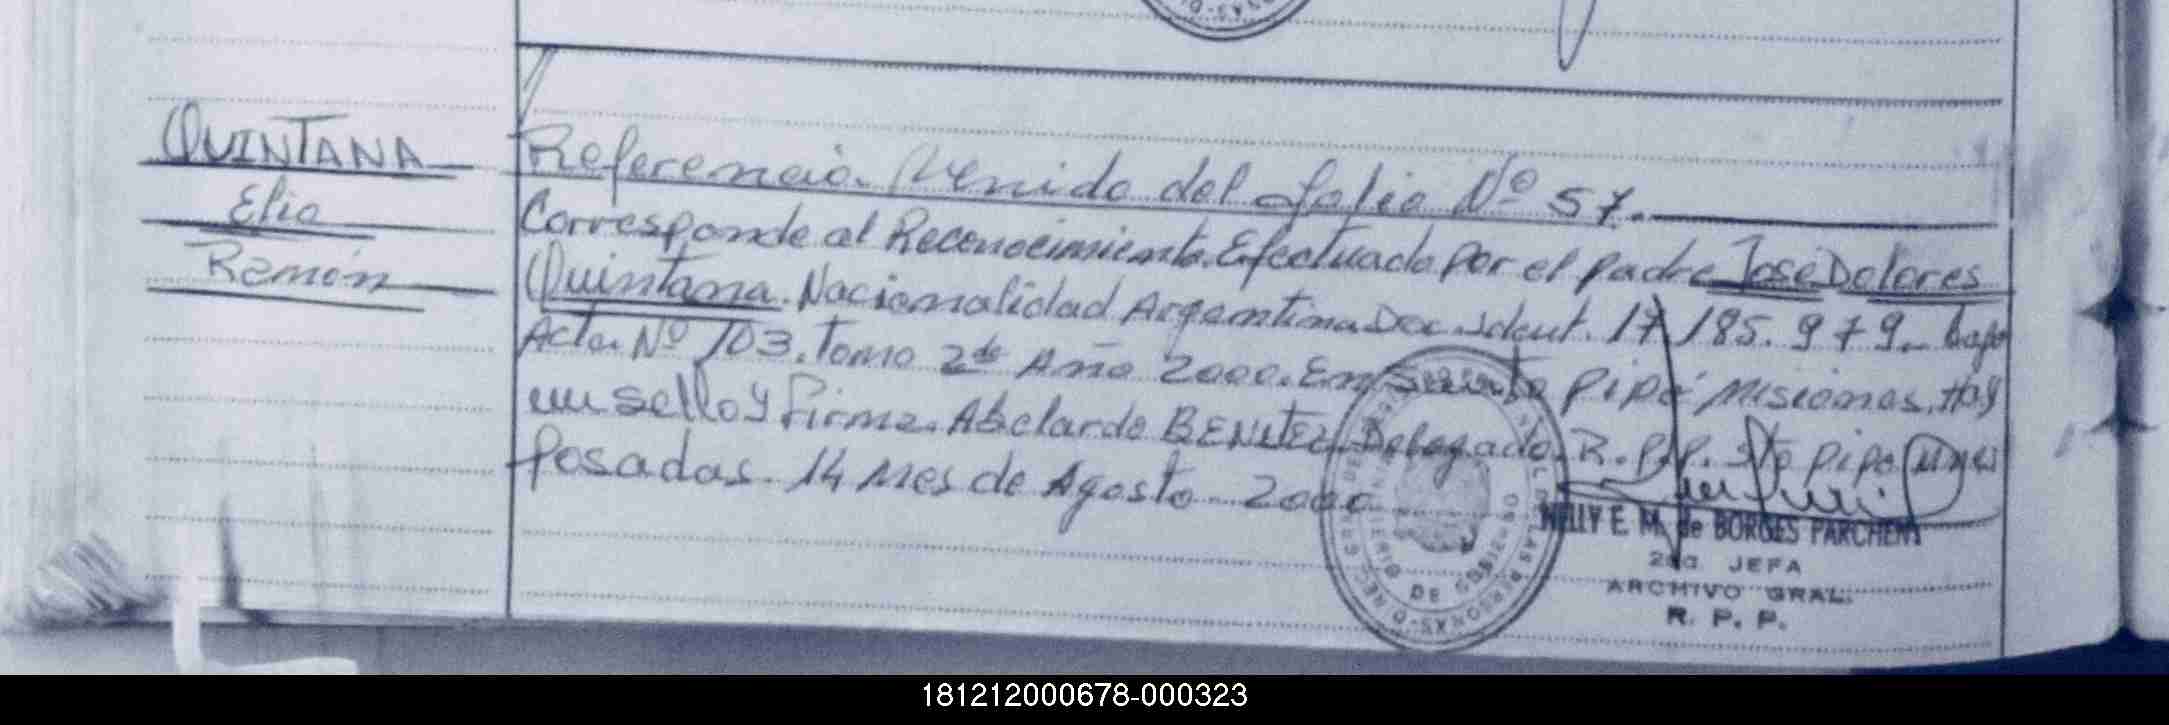 QUINTANA
Elio
Ramón
Referencia. Venido del folio Nº 57.
Corresponde al Reconocimiento Efectuado por el padre José Dolores
Quintana. Nacionalidad Argentina Doc. Ident. 17.185.979. bajo
Acta Nº 103. Tomo 2do Año 2000. En Santo Pipó Misiones. Hay
un sello y firma. Abelardo BENITEZ Delegado R.P.P. Sto Pipo
Posadas. 14 Mes de Agosto 2000
NELLY E. M. de BORGES PARCHEN
2da. JEFA
ARCHIVO GRAL.
R. P. P.
181212000678-000323